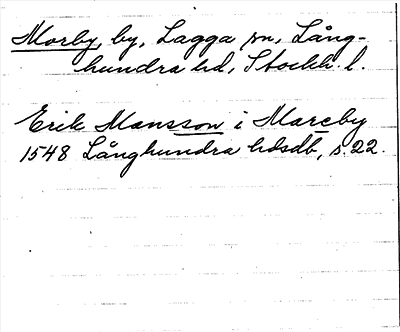 Morby, by, Lagga sn, Lång-
hundra hd, Stockh. l.
Erik Mansson i Mareby
1548 Långhundra hdsdb, s. 22.